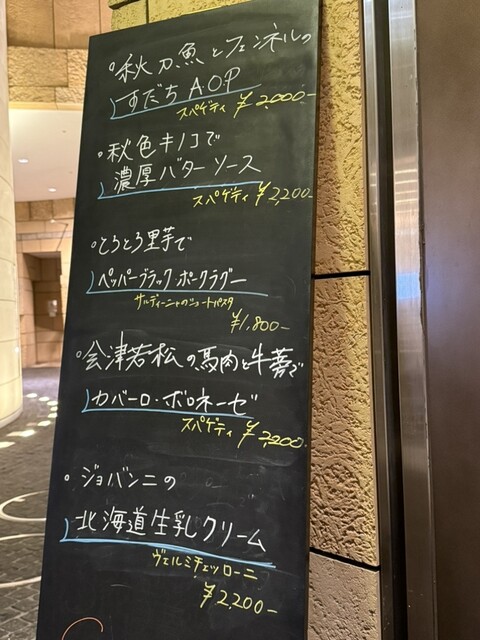 ・秋刀魚とフェンネルの
すだちA.O.P
スパゲティ ¥2,000-
・秋色キノコで
濃厚バターソース
スパゲティ ¥2,200-
・とろとろ里芋で
ペッパーブラック・ポークラグー
サルディーニャのショートパスタ
¥1,800-
・会津若松の馬肉と牛蒡で
カバーロ・ボロネーゼ
スパゲティ ¥2,200-
・ジョバンニの
北海道生乳クリーム
ヴェルミチェッローニ
¥2,200-